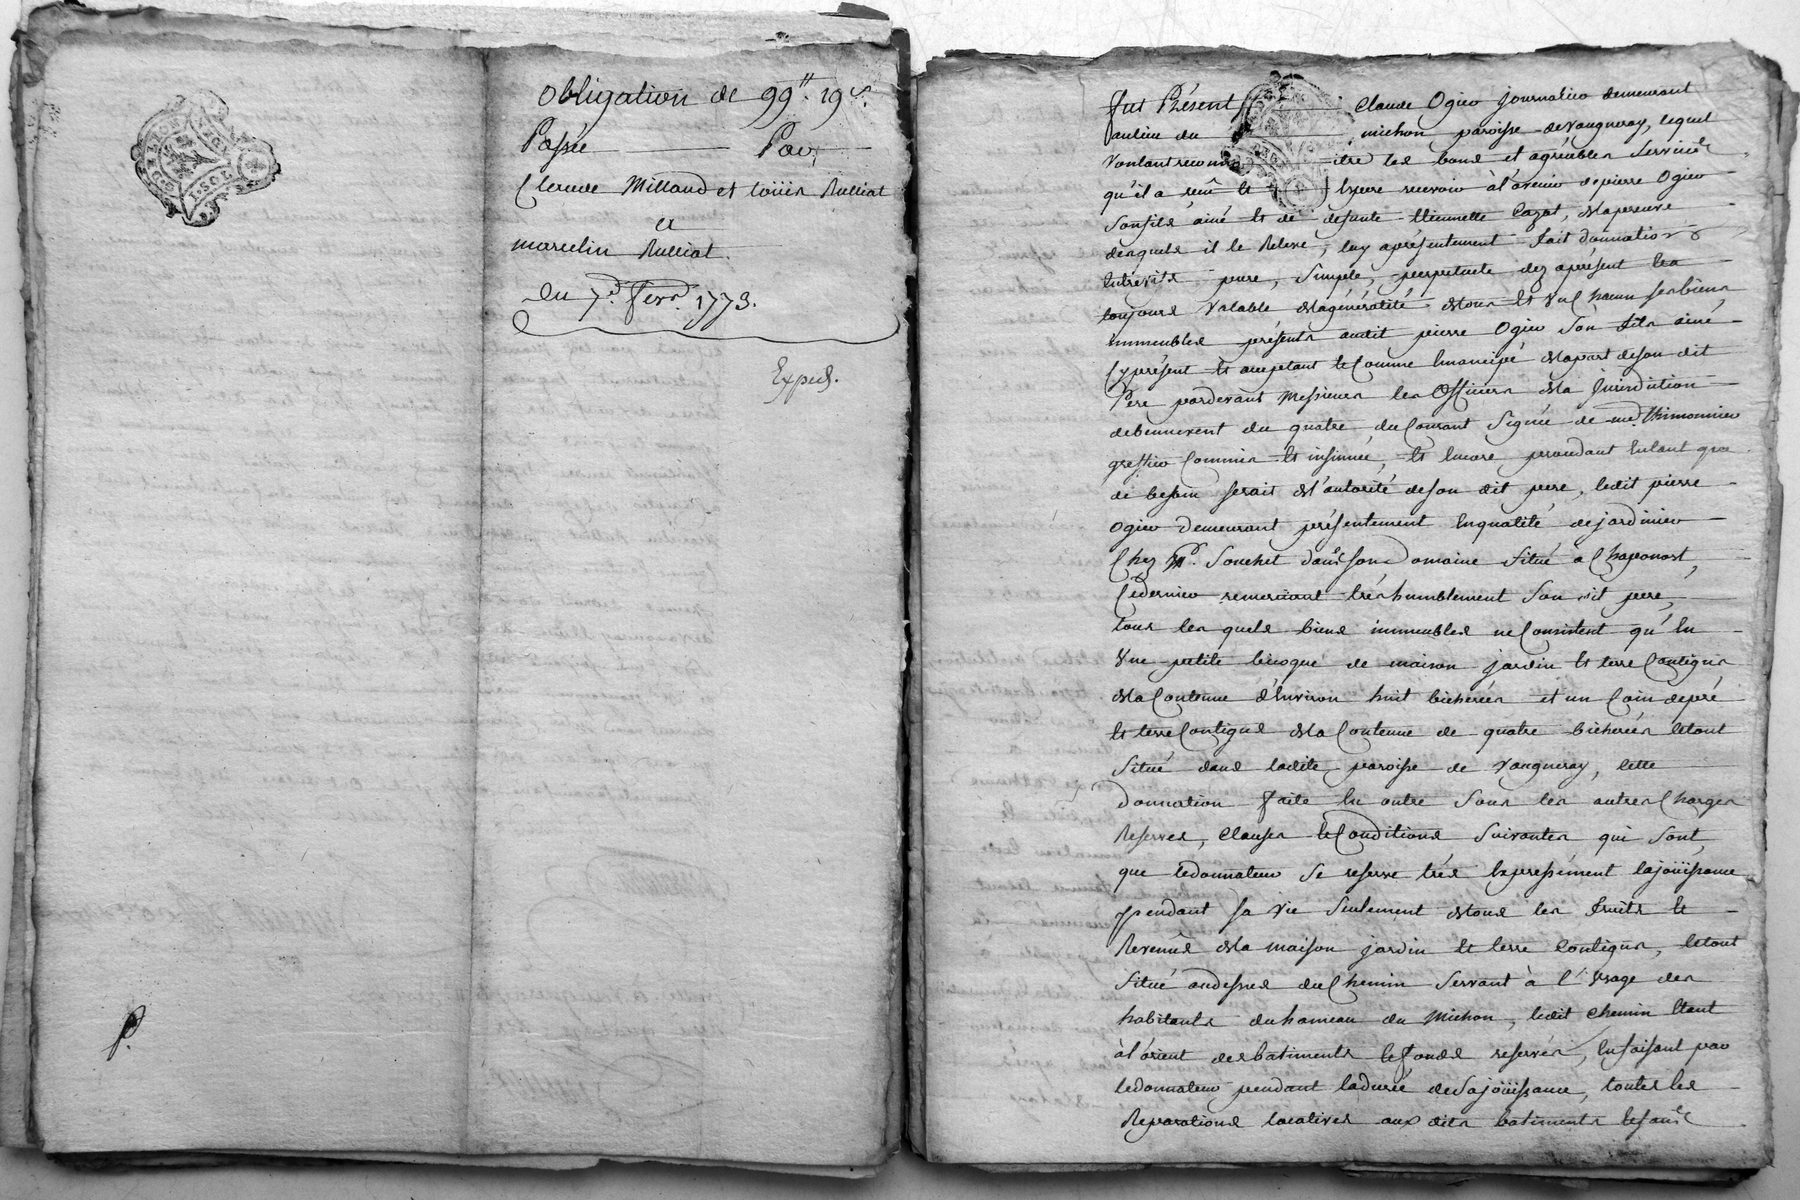 obligation de 99ᴴ. 19 s.
Passée Par
Claude Millaud et Loüis Rulliat
a
marcelin Rulliat.
du 7.e fevr. 1773.
Exped.
G. DE LYON
1. SOL
P.
fut Présent Claude Ogier journalier demeurant
au lieu du michon paroisse de vaugneray, lequel
voulant reconn itre les bons et agréables services
qu'il a reçû et Espere recevoir à l'avenir de pierre Ogier
son fils ainé et de defunte Etiennette Cazot, de la preuve
desquels il le Releve, luy a présentement fait donnation
Entrevifs pure, simple, perpetuelle dez aprésent et a
toujours valable de la généralité de tous et un Chacun ses biens
immeubles présents audit pierre Ogier son fils ainé
Cy présent et acceptant et Comme Emancipé de la part de son dit
Pere pardevant Messieurs les Officiers de la Jurisdiction
debennevent du quatre du Courant Signée de me. Thimonnier
greffier Commis et insinuée, et Encore procédant Entant que
de besoin serait de l'autorité de son dit pere, ledit pierre
Ogier demeurant présentement Enqualité de jardinier
Chez Mr. Souchet dans son Domaine Situé à Chaponost,
Ce dernier remerciant très humblement Son dit pere,
tous les quels biens immeubles ne Consistent qu'En
Une petite bicoque de maison jardin et terre Contigus
de la Contenue d'Environ huit bicherées et un Coin de pré
et terre Contigus de la Contenue de quatre bicherées letout
Situé dans ladite paroisse de vaugneray, Cette
donnation faite En outre Sous les autres Charges
Reserves, clauses et Conditions Suivantes qui Sont,
que le donnateur Se reserve très Expressément la joüissance
pendant sa vie Seulement de tous les fruits et
Revenus de la maison jardin et terre Contigus, letout
Situé audessus du Chemin Servant à l'Usage des
habitants du hameau du Michon, ledit chemin Etant
à l'orient des batiments et fonds reservés, En faisant par
le donnateur pendant la durée de Sa joüissance, toutes les
Reparations locatives aux dits batiments et sans